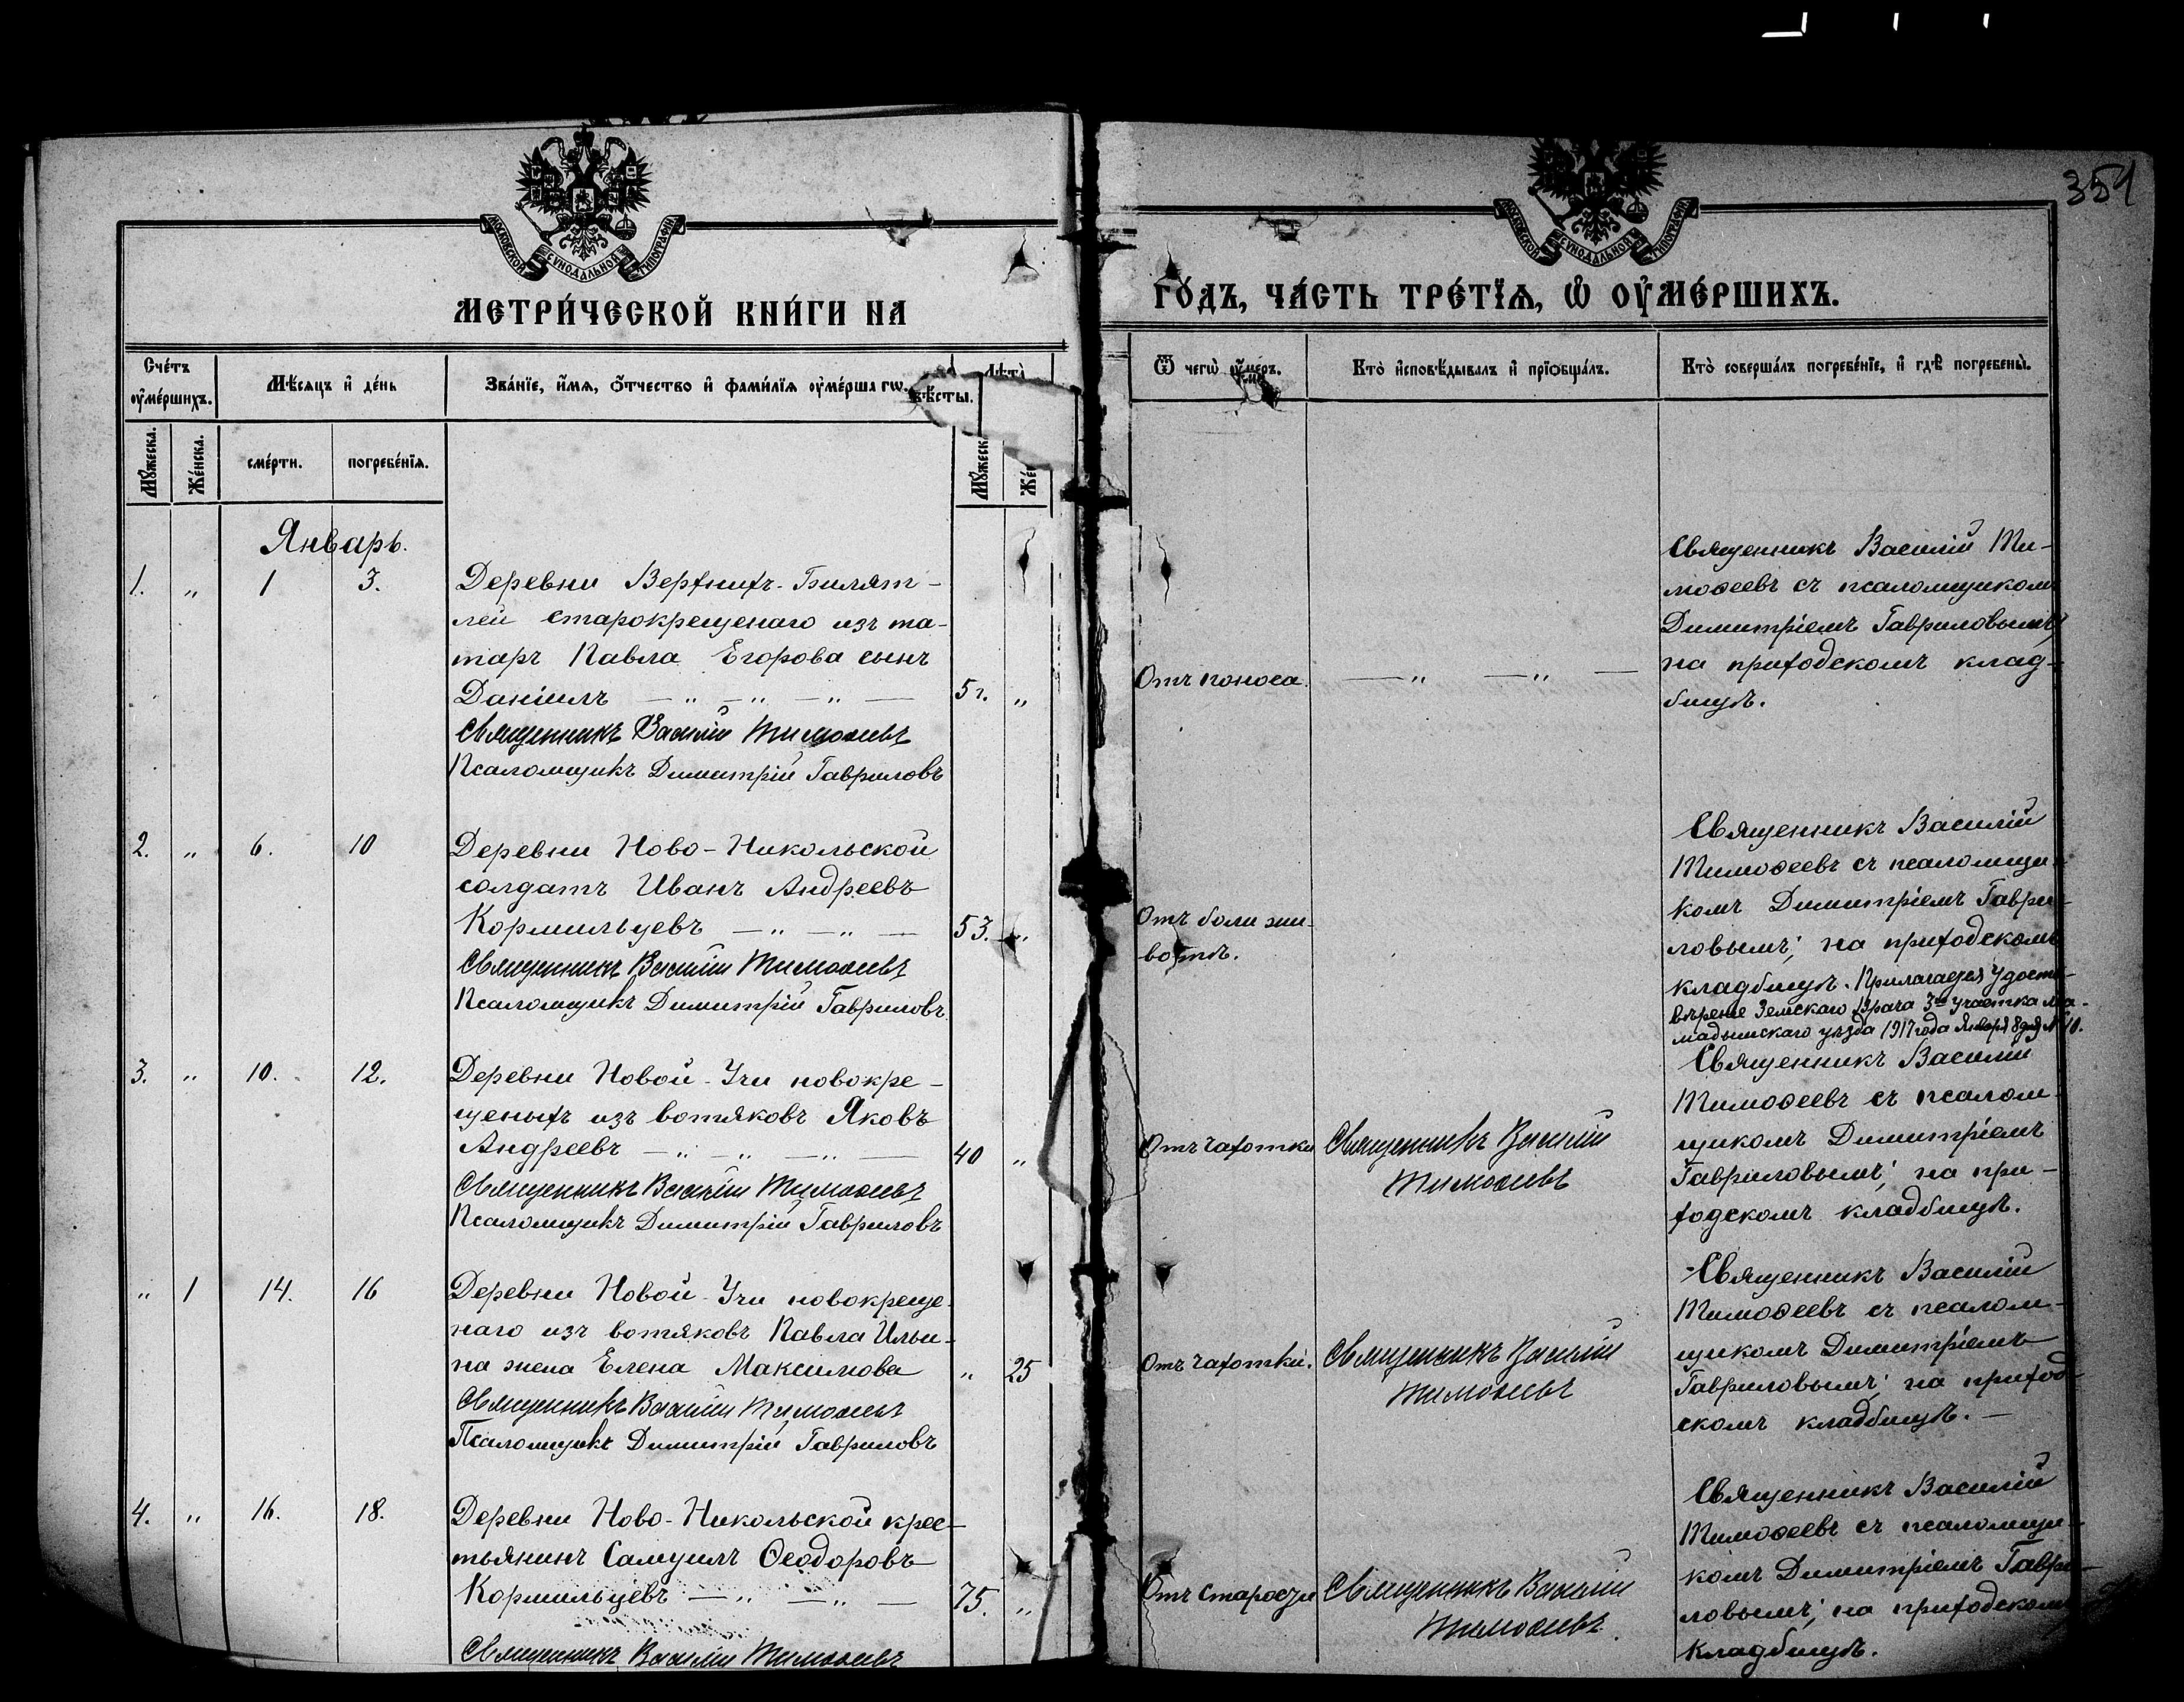 354
МОСКОВСКОЙ СѴНОДАЛЬНОЙ ТИПОГРАФІИ
МОСКОВСКОЙ СѴНОДАЛЬНОЙ ТИПОГРАФІИ
МЕТРИ́ЧЕСКОЙ КНИ́ГИ НА
ГО́ДЪ, ЧА́СТЬ ТРЕ́ТЇѦ, Ѽ ОУ҆МЕ́РШИХЪ.
Сче́тъ оу҆ме́ршихъ.
Мѣ́сяцъ и҆ де́нь
Зва́нїе, и҆́мя, ѻ҆́тчество и҆ фами́лїя оу҆ме́ршагѡ.
Лѣ́та
вѣ́сты.
Ѿ чегѡ̀ оу҆́меръ.
Кто̀ и҆сповѣ́дывалъ и҆ прїѻбща́лъ.
Кто̀ соверша́лъ погребе́нїе, и҆ гдѣ̀ погребены̀.
Мꙋ́жеска.
Же́нска.
сме́рти.
погребе́нїя.
Мꙋ́жеска
Же
Январь.
1. „ 1 3.
Деревни Верхнихъ-Билят-
лей старокрещенаго изъ та-
таръ Павла Егорова сынъ
Даніилъ — „ — „ — „ — 5 г. „
Священникъ Василій Тимоѳеевъ
Псаломщикъ Димитрій Гавриловъ
Отъ поноса.
— „ — „ —
Священникъ Василій Ти-
моѳеевъ съ псаломщикомъ
Димитріемъ Гавриловымъ;
на приходскомъ клад-
бищѣ.
2. „ 6. 10
Деревни Ново-Никольской
солдатъ Иванъ Андреевъ
Кормильцевъ — „ — „ — 53. „
Священникъ Василій Тимоѳеевъ
Псаломщикъ Димитрій Гавриловъ
Отъ боли жи-
вотѣ.
Священникъ Василій
Тимоѳеевъ съ псаломщи-
комъ Димитріемъ Гаври-
ловымъ; на приходскомъ
кладбищѣ. Прилагается Удосто-
вѣреніе Земскаго Врача 3го участка Ма-
мадышскаго уѣзда 1917 года Января 8 дня № 10.
3. „ 10. 12.
Деревни Новой-Учи новокре-
щеныхъ изъ вотяковъ Яковъ
Андреевъ — „ — „ — „ — 40 „
Священникъ Василій Тимоѳеевъ
Псаломщикъ Димитрій Гавриловъ
Отъ чахотки
Священникъ Василій
Тимоѳеевъ
Священникъ Василій
Тимоѳеевъ съ псалом-
щикомъ Димитріемъ
Гавриловымъ; на при-
ходскомъ кладбищѣ.
„ 1 14. 16
Деревни Новой-Учи новокреще-
наго изъ вотяковъ Павла Ильи-
на жена Елена Максимова „ 25
Священникъ Василій Тимоѳеевъ
Псаломщикъ Димитрій Гавриловъ
Отъ чахотки.
Священникъ Василій
Тимоѳеевъ
Священникъ Василій
Тимоѳеевъ съ псалом-
щикомъ Димитріемъ
Гавриловымъ; на приход-
скомъ кладбищѣ. —
4. „ 16. 18.
Деревни Ново-Никольской крес-
тьянинъ Самуилъ Ѳеодоровъ
Кормильцевъ — „ — „ — 75. „
Священникъ Василій Тимоѳеевъ
Отъ старости
Священникъ Василій
Тимоѳеевъ.
Священникъ Василій
Тимоѳеевъ съ псаломщи-
комъ Димитріемъ Гаври-
ловымъ; на приходскомъ
кладбищѣ.